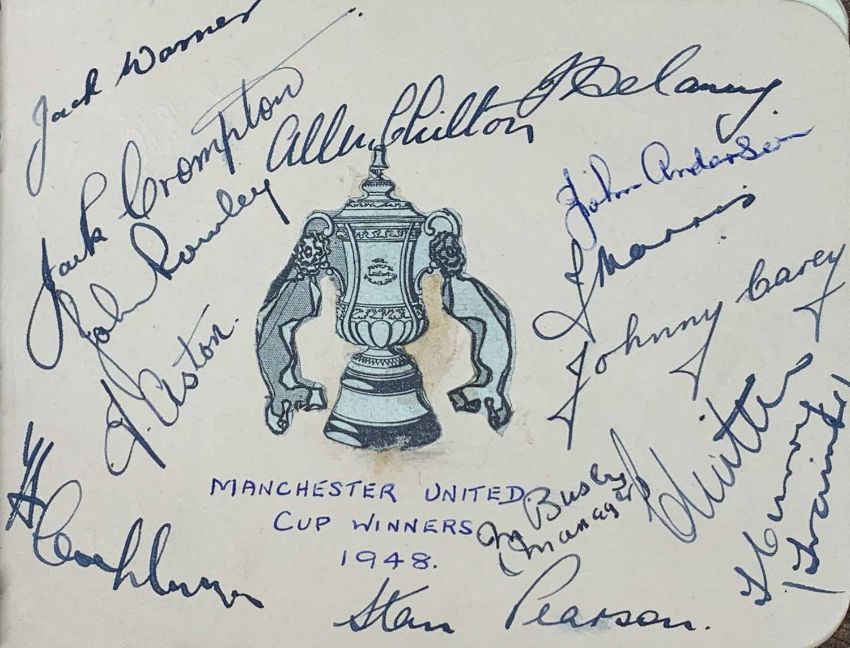 Jack Warner
Jack Crompton
Allen Chilton
J Delaney
John Anderson
J Morris
John Rowley
Johnny Carey
J. Aston.
H Cockburn
MANCHESTER UNITED
CUP WINNERS
1948.
M Busby
(Manager)
T Curry
(Trainer)
Stan Pearson.